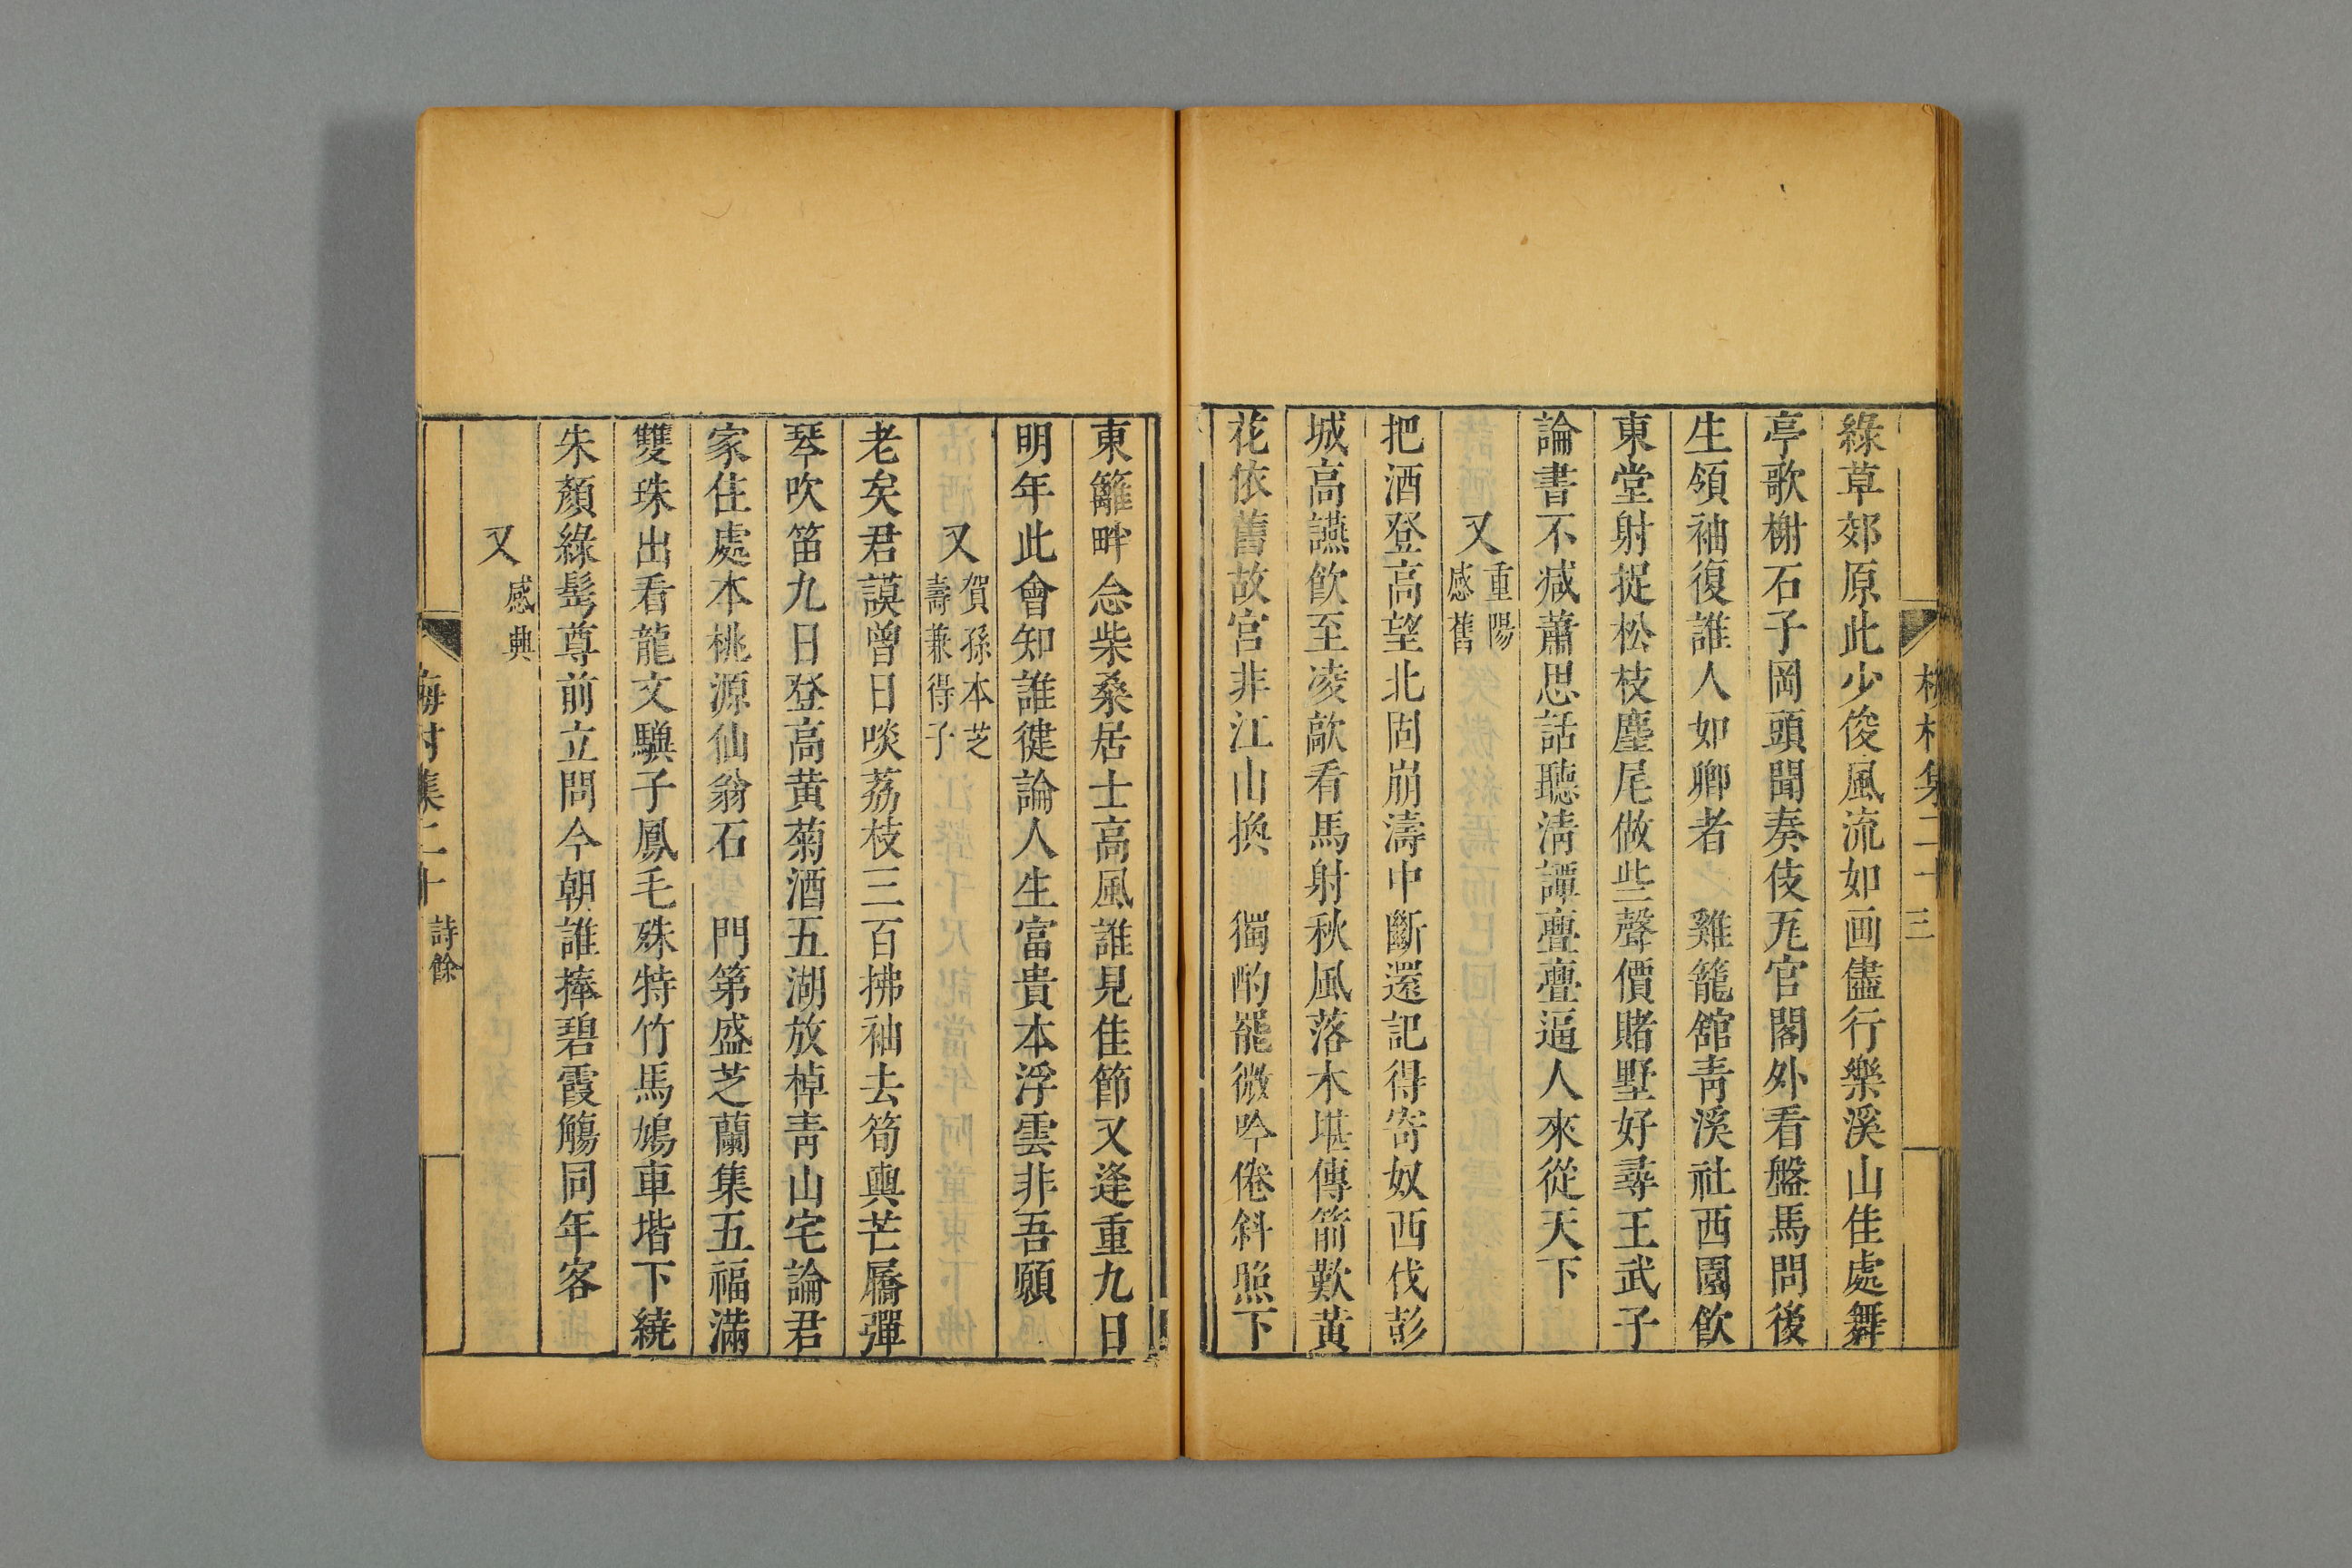 梅村集二十
三
綠草郊原此少俊風流如画儘行樂溪山佳處舞
亭歌榭石子岡頭聞奏伎瓦官閣外看盤馬問後
生領袖復誰人如卿者　雞籠舘青溪社西園飲
東堂射捉松枝麈尾做些聲價賭墅好尋王武子
論書不减蕭思話聽清譚亹亹逼人來從天下
又
重陽
感舊
把酒登高望北固崩濤中斷還記得寄奴西伐彭
城高讌飲至凌歊看馬射秋風落木堪傳箭歎黃
花依舊故宮非江山換　獨酌罷微吟倦斜照下
東籬畔念柴桑居士高風誰見佳節又逢重九日
明年此會知誰健論人生富貴本浮雲非吾願
又
賀孫本芝
壽兼得子
老矣君謨曾日啖荔枝三百拂袖去筍輿芒屩彈
琴吹笛九日登高黄菊酒五湖放棹青山宅論君
家住處本桃源仙翁石　門第盛芝蘭集五福滿
雙珠出看龍文驥子鳳毛殊特竹馬鳩車堦下繞
朱顏綠髩尊前立問今朝誰捧碧霞觴同年客
又
感興
梅村集二十
詩餘